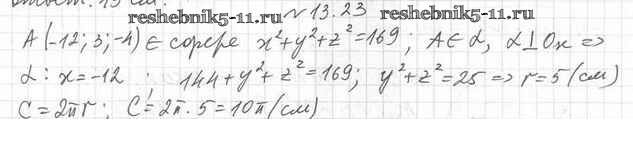 reshebnik5-11.ru № 13.23 reshebnik5-11.ru
A(-12; 3; -4) ∈ сфере x²+y²+z²=169; A∈α, α⊥Ox ⇒
α: x=-12; 144+y²+z²=169; y²+z²=25 ⇒ r=5(см)
C=2πr; C=2π·5=10π(см)